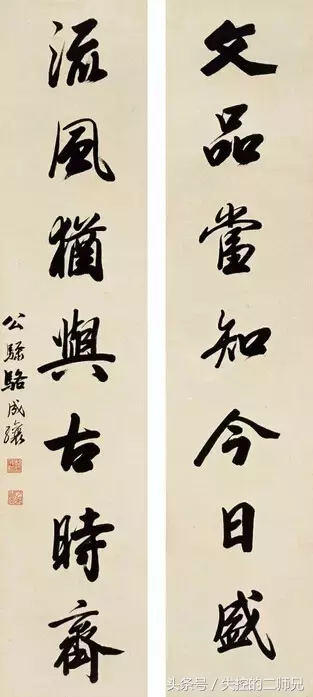 文品當知今日盛
流風猶與古時齊
公驌駱成驤
头条号／失控的二师兄